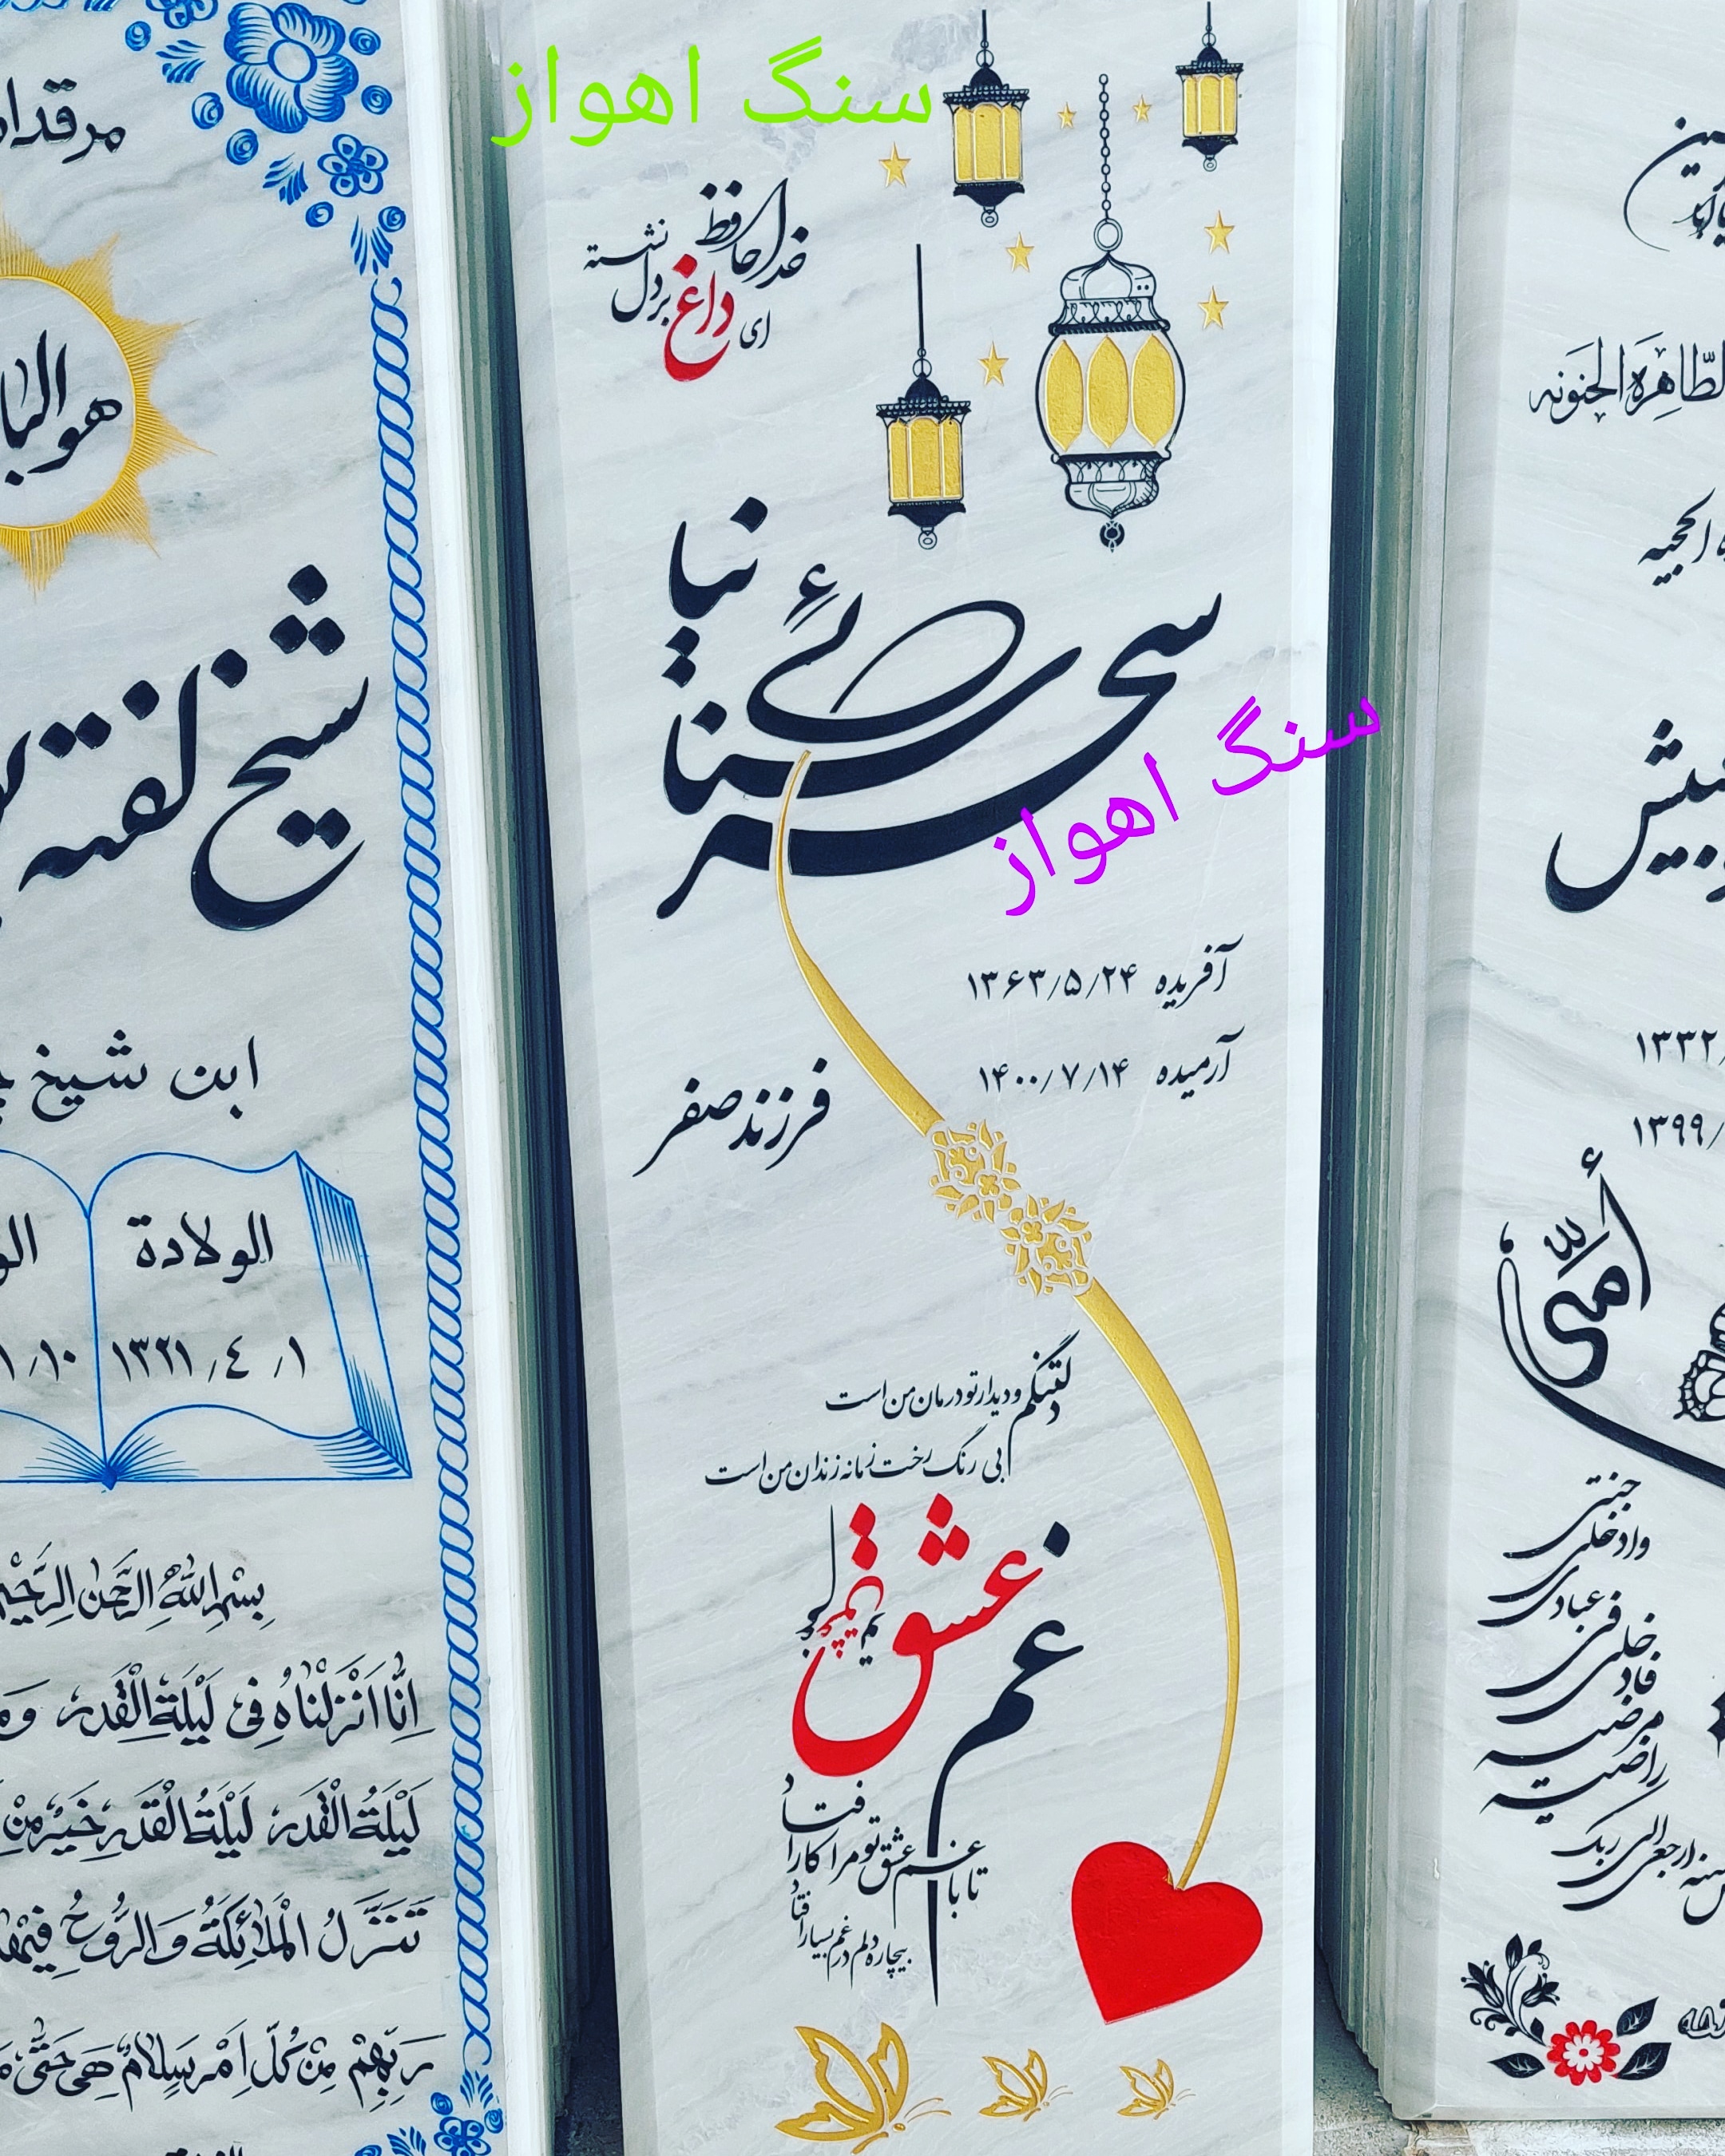 سنگ اهواز
خداحافظ
ای داغ بر دل نشسته
سحر
ثنائی نیا
سنگ اهواز
آفریده ۱۳۶۳/۵/۲۴
آرمیده ۱۴۰۰/۷/۱۴
فرزند صفر
دلتنگم و دیدار تو درمان من است
بی رنگ رخت زمانه زندان من است
غم عشق
تا با غم عشق تو مرا کار افتاد
بیچاره دلم در غم بسیار افتاد
هو
شیخ لفته
ابن شیخ
الولادة
١٣٢١/٤/١
بِسْمِ اللهِ الرَّحْمٰنِ الرَّحِیمِ
اِنّا اَنْزَلْناهُ فِی لَیْلَةِ الْقَدْرِ
لَیْلَةُ الْقَدْرِ لَیْلَةُ الْقَدْرِ خَیْرٌ مِنْ
تَنَزَّلُ الْمَلائِکَةُ وَ الرُّوحُ فِیها
رَبِّهِمْ مِنْ کُلِّ اَمْرٍ سَلامٌ هِیَ حَتّى
الطّاهِرَة الحَنونه
الحجیه
۱۳۳۲/
۱۳۹۹/
أمّي
جنتی
وادخلی
فی عبادی
فادخلی
راضیة مرضیه
ارجعی الی ربک